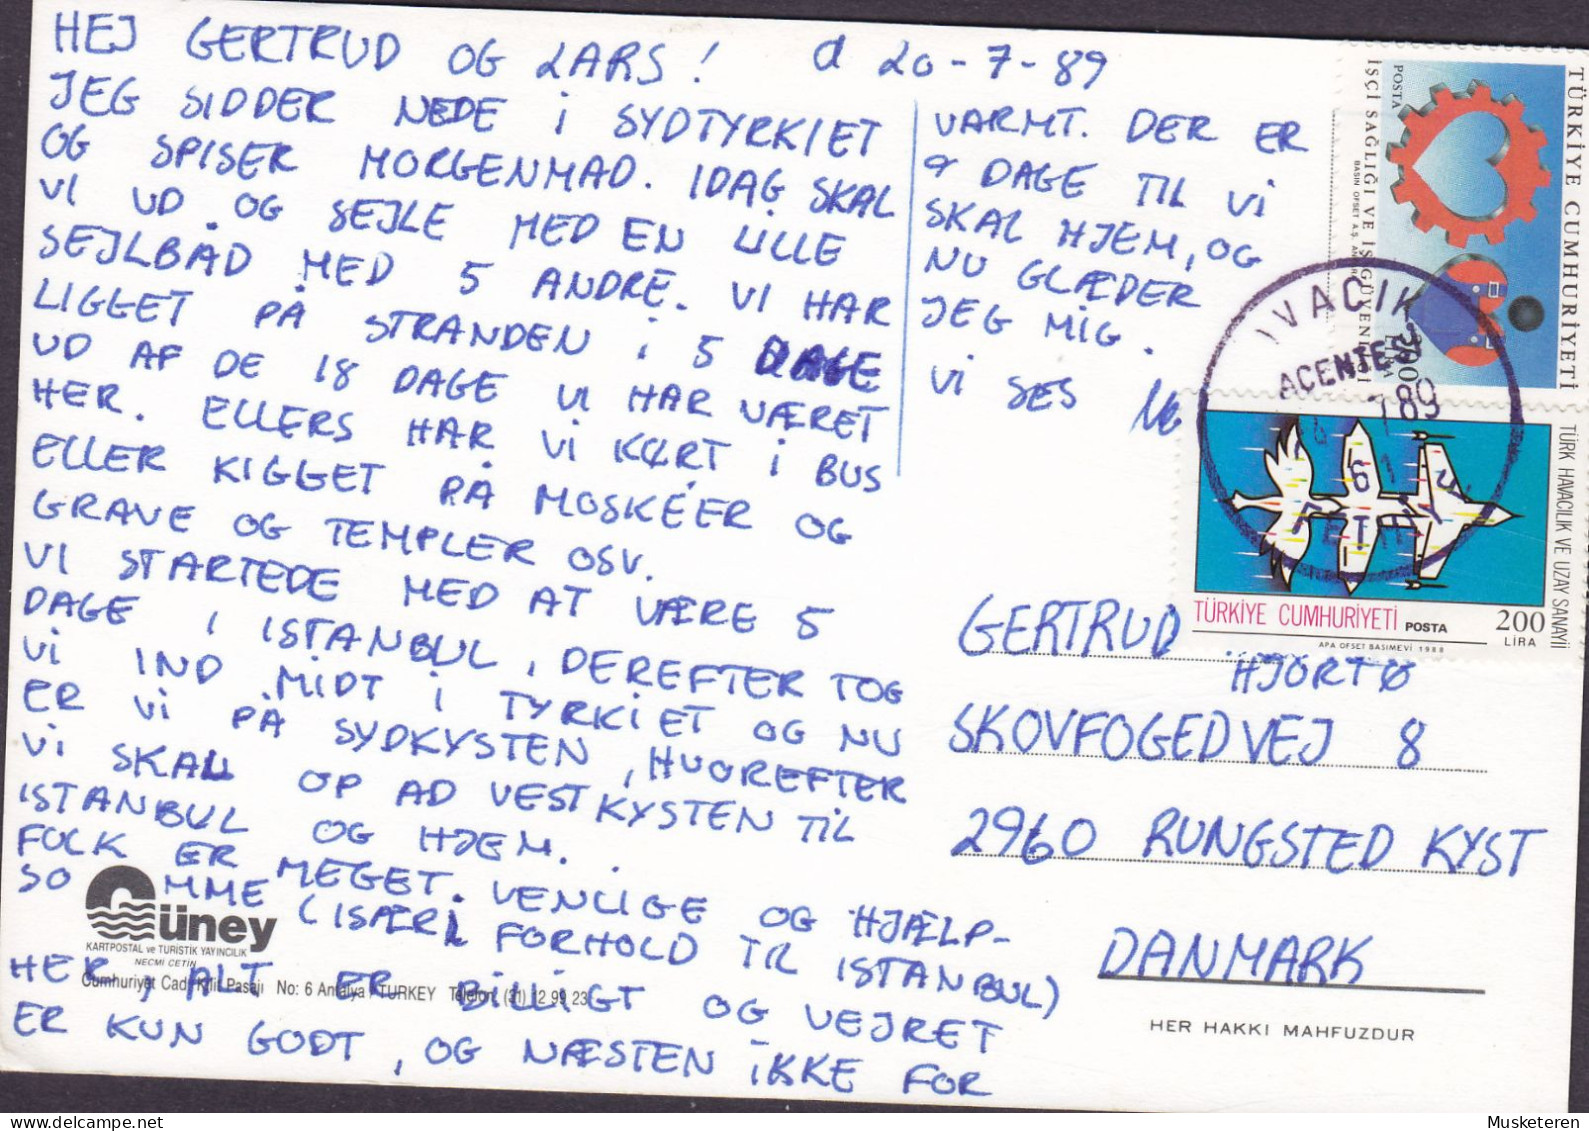 HEJ GERTRUD OG LARS! d 20-7-89
JEG SIDDER NEDE i SYDTYRKIET
OG SPISER MORGENMAD. IDAG SKAL
VI UD OG SEJLE MED EN LILLE
SEJLBÅD MED 5 ANDRE. VI HAR
LIGGET PÅ STRANDEN i 5 DAGE
UD AF DE 18 DAGE VI HAR VÆRET
HER. ELLERS HAR VI KØRT i BUS
ELLER KIGGET PÅ MOSKÉER OG
GRAVE OG TEMPLER OSV.
VI STARTEDE MED AT VÆRE 5
DAGE i ISTANBUL, DEREFTER TOG
Vi IND MIDT i TYRKIET OG NU
ER Vi PÅ SYDKYSTEN, HVOREFTER
Vi SKAL OP AD VESTKYSTEN TiL
ISTANBUL OG HJEM.
FOLK ER MEGET VENLIGE OG HJÆLP-
SOMME (ISÆR i FORHOLD TIL ISTANBUL)
HER, ALT ER BILLIGT OG VEJRET
ER KUN GODT, OG NÆSTEN iKKE FOR
VARMT. DER ER
9 DAGE TIL Vi
SKAL HJEM, OG
NU GLÆDER
JEG MIG.
Vi SES
GERTRUD
HJORTØ
SKOVFOGEDVEJ 8
2960 RUNGSTED KYST
DANMARK
Güney
KARTPOSTAL ve TURİSTİK YAYINCILIK
NECMİ ÇETİN
Cumhuriyet Cad. Kilit Pasajı No: 6 Antalya / TURKEY Telefon: (31) 12 99 23
HER HAKKI MAHFUZDUR
TÜRKİYE CUMHURİYETİ
İŞÇİ SAĞLIĞI VE İŞ GÜVENLİĞİ
POSTA
LİRA
TÜRK HAVACILIK VE UZAY SANAYİİ
TÜRKİYE CUMHURİYETİ POSTA 200
LİRA
APA OFSET BASIMEVİ 1988
ACENTE
Musketeren